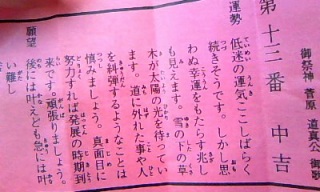 御祭神 菅原 道真公 御歌
第十三番 中吉
運勢
低迷の運気、ここしばらく
続きそうです。しかし思
わぬ幸運をもたらす兆し
も見えます。雪の下の草
木が太陽の光を待ってい
ます。道に外れた事や人
を糾弾するようなことは
慎みましょう。真面目に
努力すれば発展の時期到
来です。頑張りましょう。
願望
後には叶えども急には叶
い難し